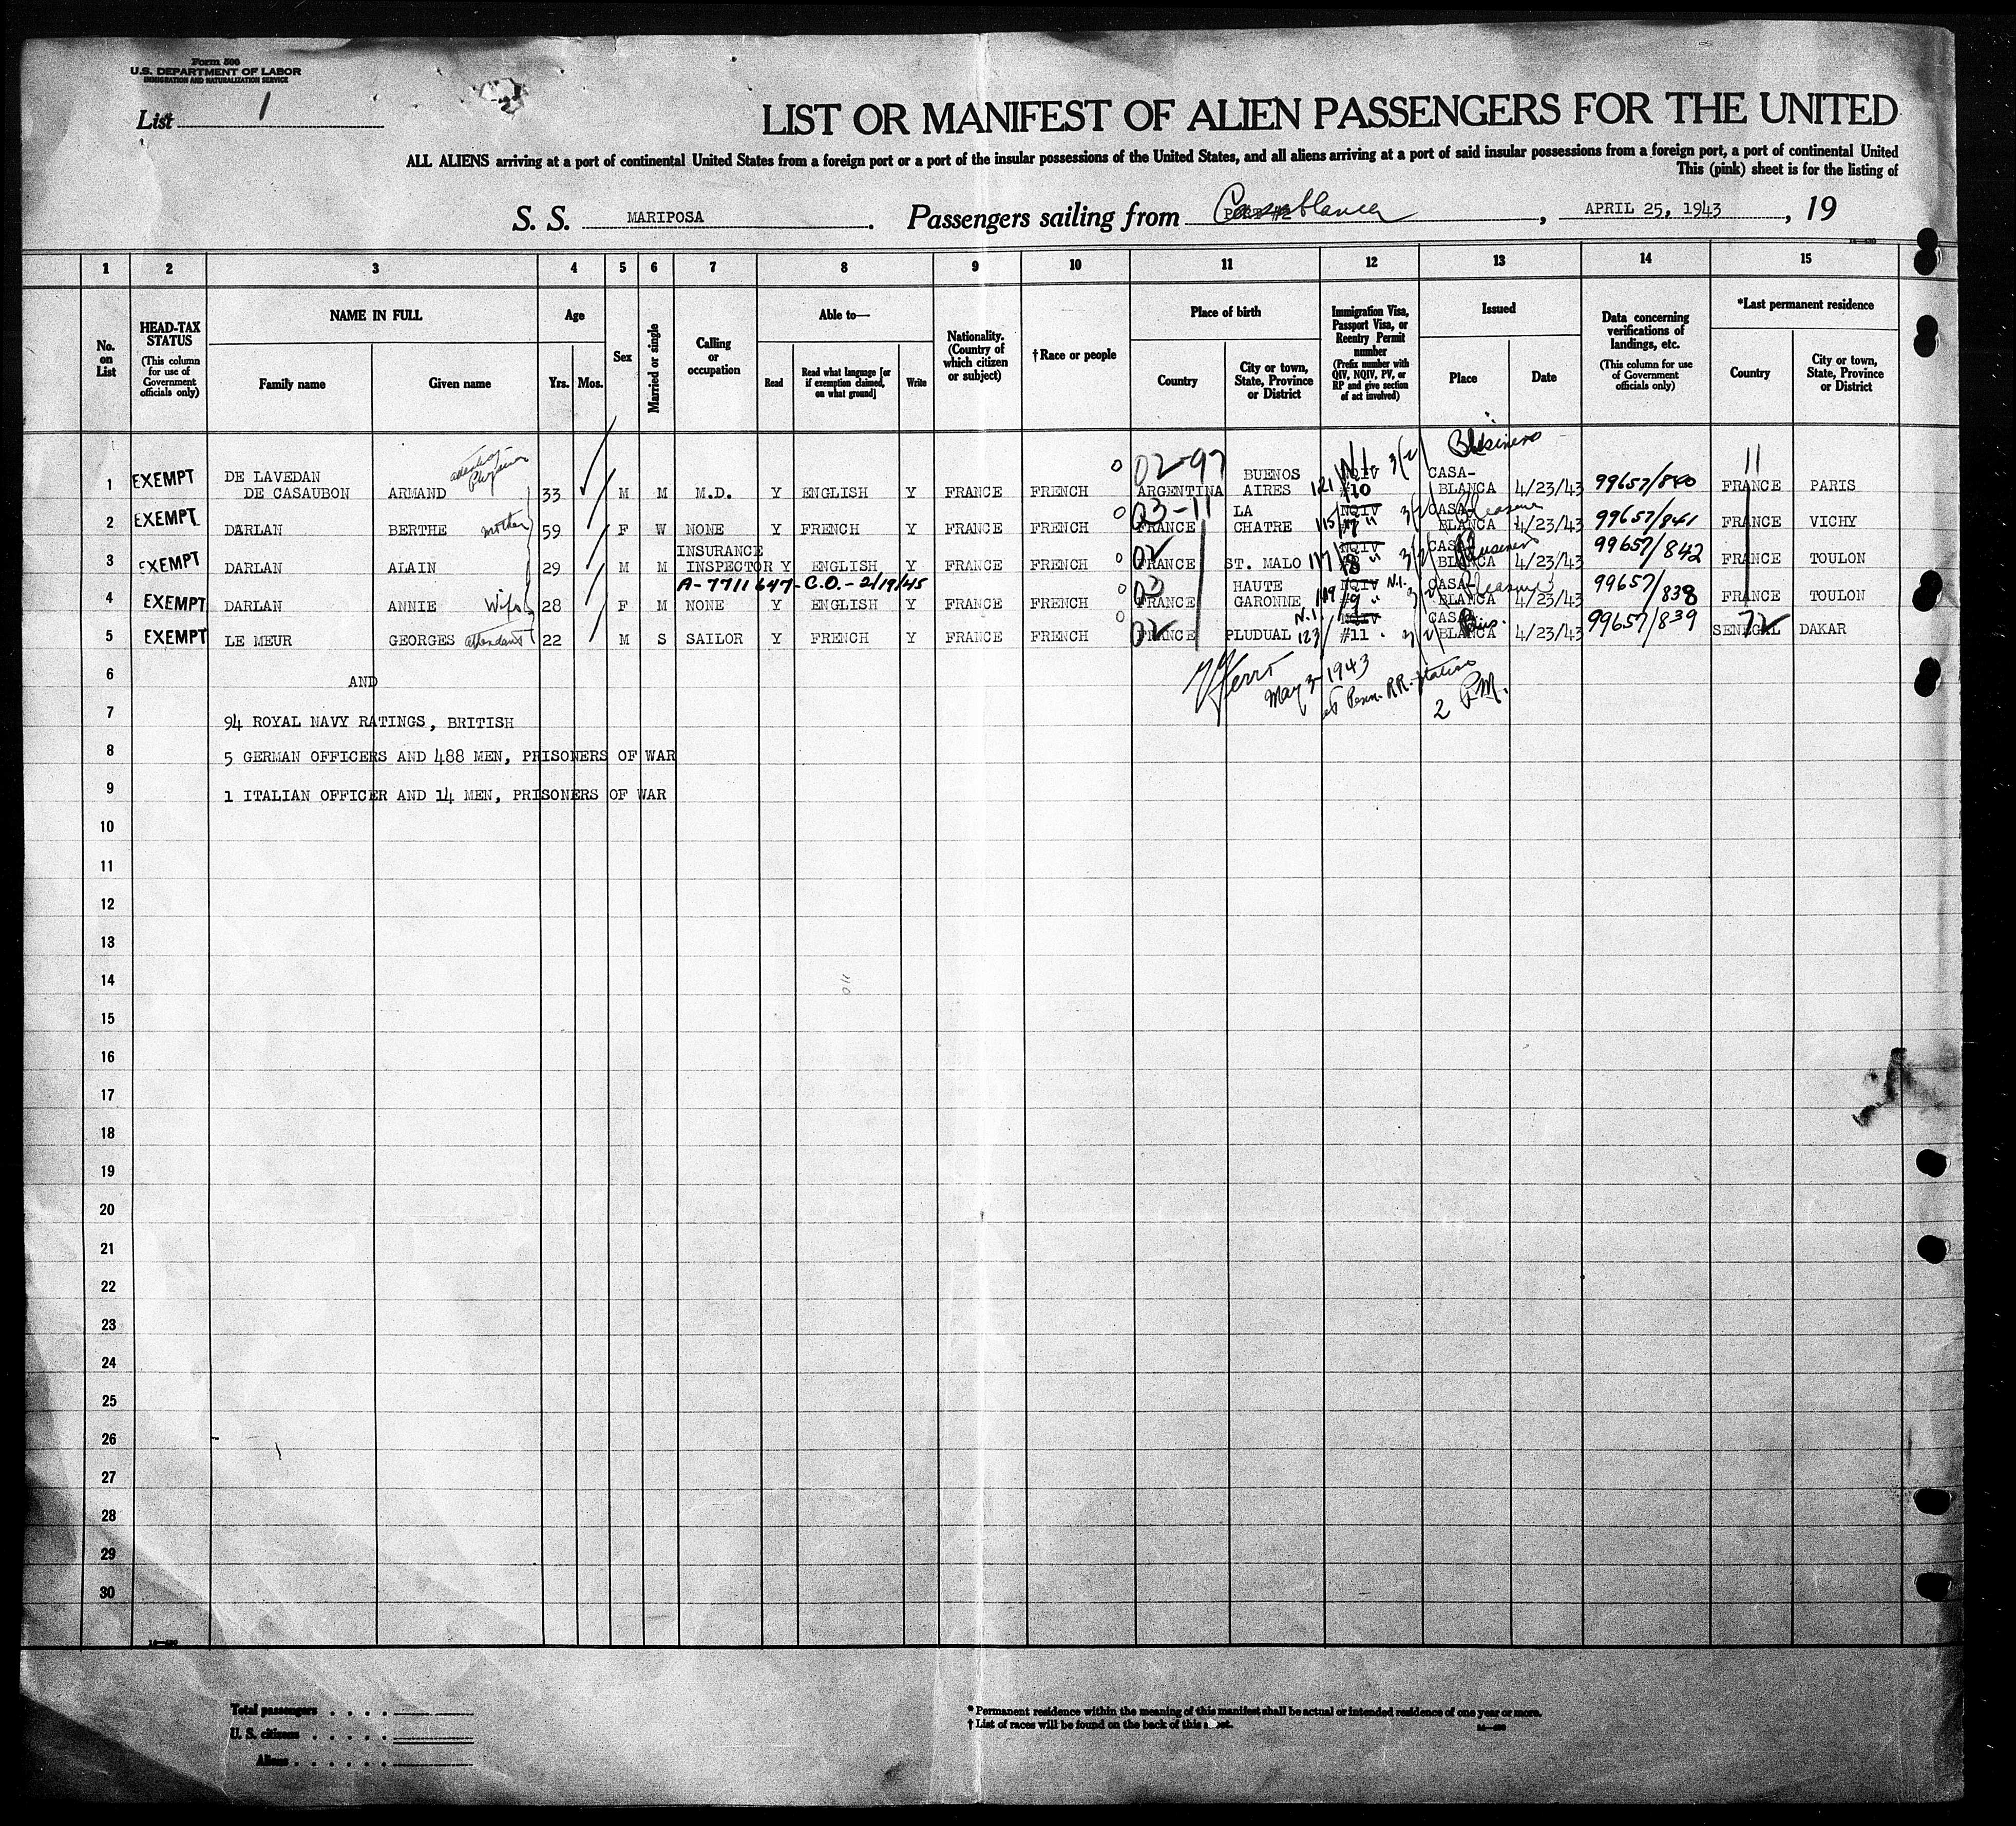 Form 500
U.S. DEPARTMENT OF LABOR
IMMIGRATION AND NATURALIZATION SERVICE
List 1
LIST OR MANIFEST OF ALIEN PASSENGERS FOR THE UNITED
ALL ALIENS arriving at a port of continental United States from a foreign port or a port of the insular possessions of the United States, and all aliens arriving at a port of said insular possessions from a foreign port, a port of continental United
This (pink) sheet is for the listing of
S. S. MARIPOSA. Passengers sailing from Casablanca, APRIL 25, 1943, 19
1 2 3 4 5 6 7 8 9 10 11 12 13 14 15
No. on List
HEAD-TAX STATUS (This column for use of Government officials only)
NAME IN FULL
Family name
Given name
Age
Yrs. Mos.
Sex
Married or single
Calling or occupation
Able to—
Read
Read what language [or if exemption claimed, on what ground]
Write
Nationality. (Country of which citizen or subject)
†Race or people
Place of birth
Country
City or town, State, Province or District
Immigration Visa, Passport Visa, or Reentry Permit number (Prefix number with QIV, NQIV, PV, or RP and give section of act involved)
Issued
Place
Date
Data concerning verifications of landings, etc. (This column for use of Government officials only)
*Last permanent residence
Country
City or town, State, Province or District
1 EXEMPT DE LAVEDAN DE CASAUBON ARMAND attending Physician 33 M M M.D. Y ENGLISH Y FRANCE FRENCH 02-97 ARGENTINA BUENOS AIRES 121 NQIV #10 3(2) Business CASA-BLANCA 4/23/43 99657/840 FRANCE 11 PARIS
2 EXEMPT DARLAN BERTHE mother 59 F W NONE Y FRENCH Y FRANCE FRENCH 03-11 FRANCE LA CHATRE 115 NQIV #7 " 3(2) CASA-BLANCA Pleasure 4/23/43 99657/841 FRANCE VICHY
3 EXEMPT DARLAN ALAIN 29 M M INSURANCE INSPECTOR Y ENGLISH Y FRANCE FRENCH 02 FRANCE ST. MALO 117 NQIV #8 " 3(2) CASA-BLANCA Business 4/23/43 99657/842 FRANCE TOULON
A-7711647-C.O.-2/19/45
4 EXEMPT DARLAN ANNIE Wife 28 F M NONE Y ENGLISH Y FRANCE FRENCH 03 FRANCE HAUTE GARONNE 119 NQIV N.I. #9 " 3(2) CASA-BLANCA Pleasure 4/23/43 99657/838 FRANCE TOULON
5 EXEMPT LE MEUR GEORGES attendant 22 M S SAILOR Y FRENCH Y FRANCE FRENCH 02 FRANCE PLUDUAL N.I. 123 NQIV #11 3(2) CASA-BLANCA Bus. 4/23/43 99657/839 SENEGAL 72 DAKAR
6 AND
May 3-1943
at Penn. RR. Station
2 P.M.
7 94 ROYAL NAVY RATINGS, BRITISH
8 5 GERMAN OFFICERS AND 488 MEN, PRISONERS OF WAR
9 1 ITALIAN OFFICER AND 14 MEN, PRISONERS OF WAR
10
11
12
13
14
110
15
16
17
18
19
20
21
22
23
24
25
26
27
28
29
30
Total passengers
U. S. citizens
Aliens
* Permanent residence within the meaning of this manifest shall be actual or intended residence of one year or more.
† List of races will be found on the back of this sheet.